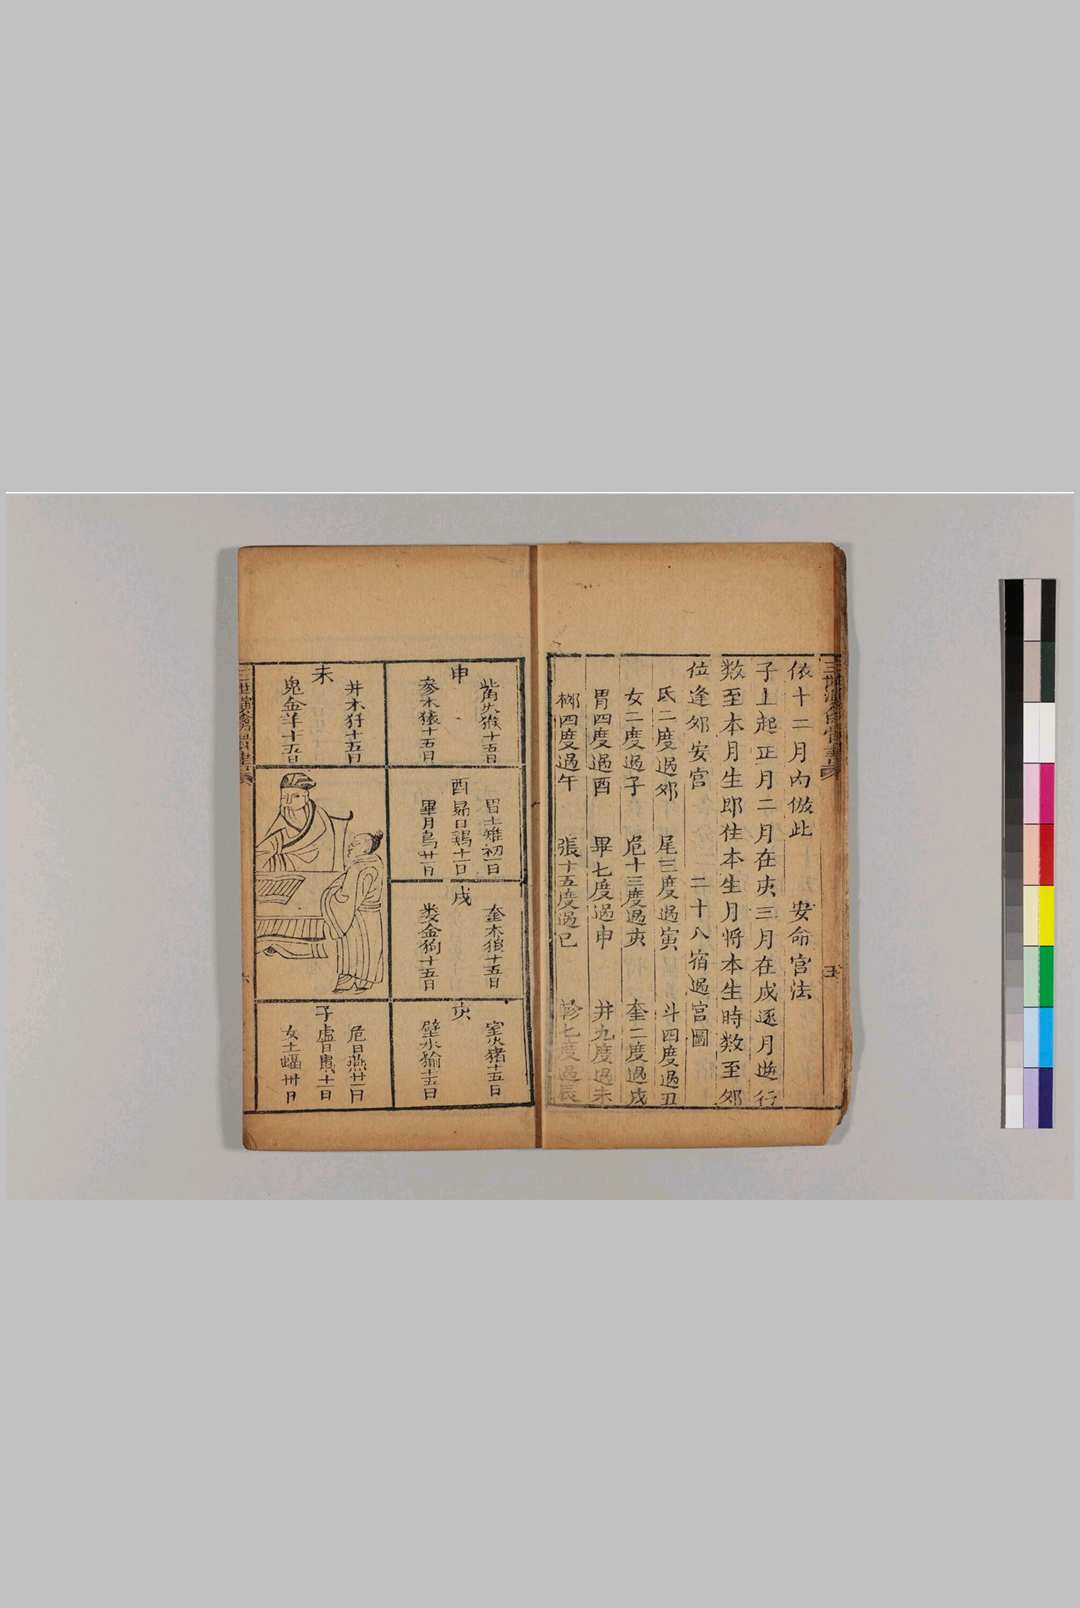 依十二月內倣此　安命宮法
子上起正月二月在亥三月在戌逐月逆行
数至本月生即住本生月將本生時数至夘
位逢夘安宫　二十八宿過宫圖
氐二度過夘　尾三度過寅　斗四度過丑
女二度過子　危十三度過亥　奎二度過戌
胃四度過酉　畢七度過申　井九度過未
栁四度過午　張十五度過巳　軫七度過辰
申
觜火猴十五日
参水猿十五日
未
井木犴十五日
鬼金羊十五日
酉
胃土雉初一日
昴日鷄十一日
畢月烏廿一日
戌
奎木狼十五日
娄金狗十五日
亥
室火猪十五日
壁水㺄十五日
子
危月燕廿一日
虛日鼠十一日
女土蝠卅日